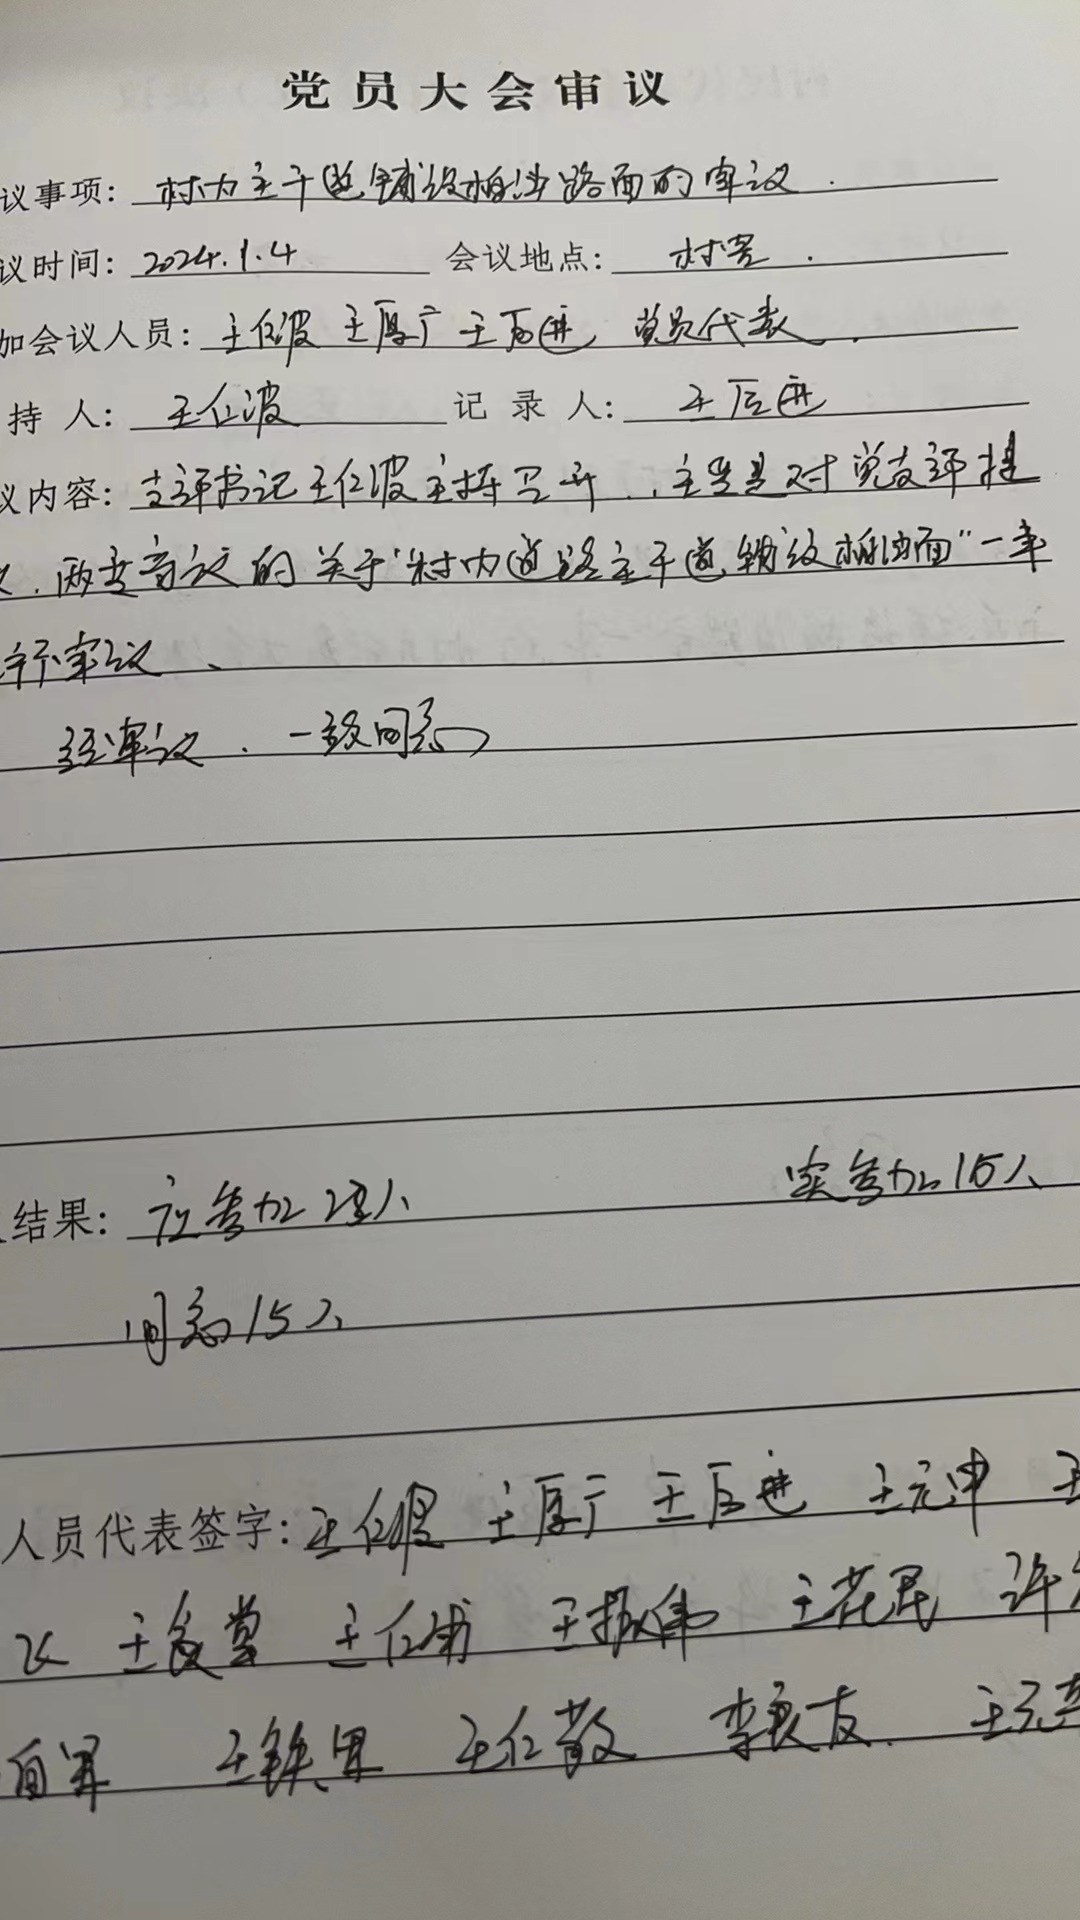 党员大会审议
议事项: 村内主干道铺设柏油路面的审议.
议时间: 2024.1.4 会议地点: 村室.
加会议人员: 王仁波 王厚广 王后进 党员代表.
持 人: 王仁波 记 录 人: 王后进
议内容: 支部书记王仁波主持召开.,主要是对党支部提
议.两委商议的关于“村内道路主干道铺设柏油面”一事
行审议、
经审议.一致同意
结果: 应参加 人 实参加15人
同意15人
人员代表签字: 王仁 王厚广 王后进 王元申 王
王 堂 王仁甫 王振伟 王花民 许
王铁 王仁敬 李良友. 王元